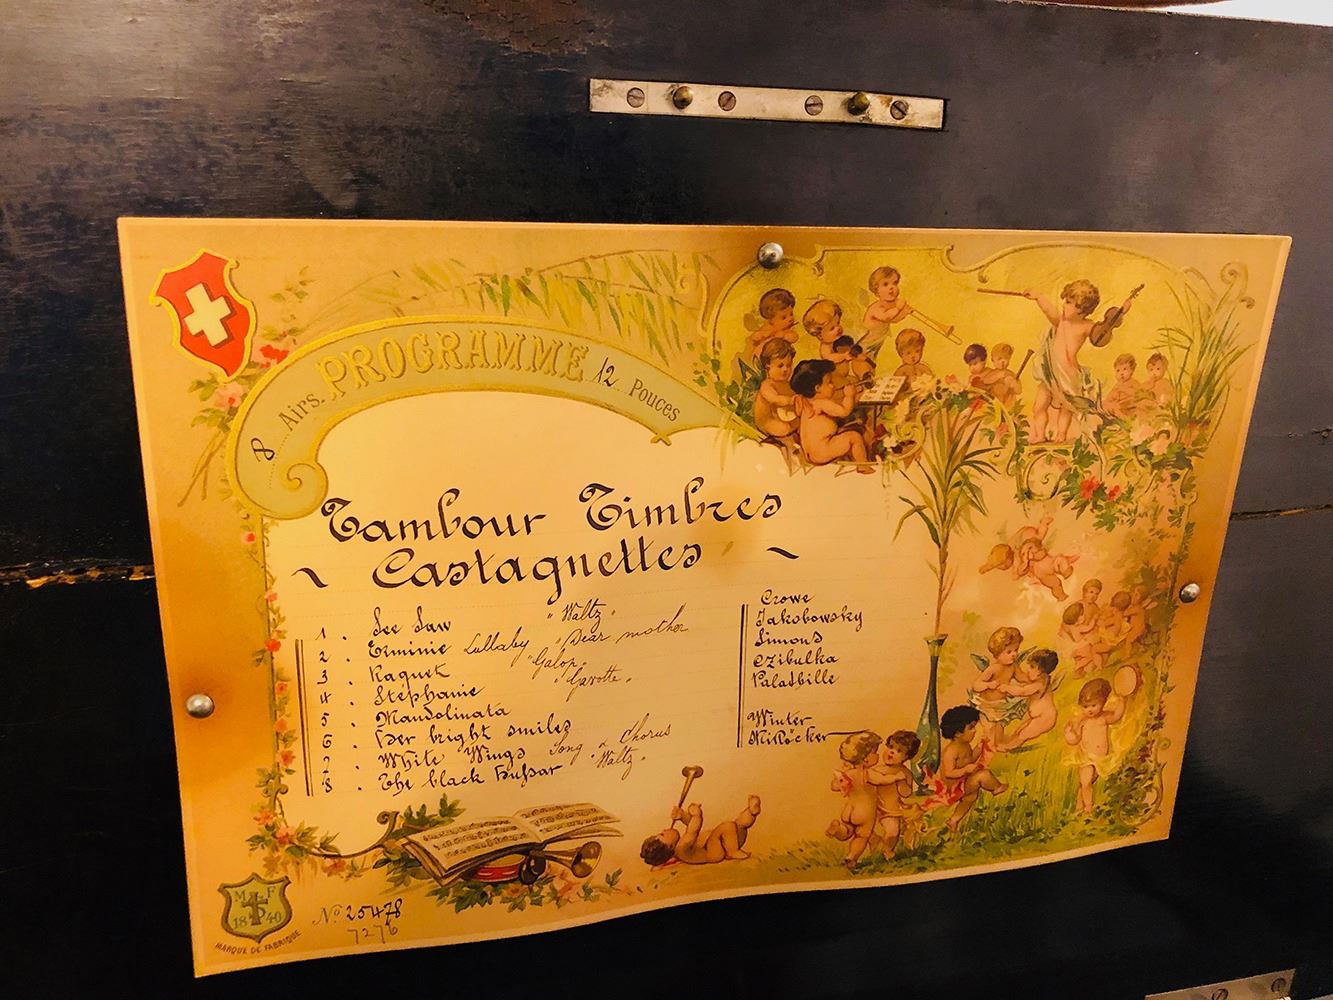 8 Airs. PROGRAMME 12 Pouces
Tambour Timbres
~ Castagnettes ~
1. See Saw "Waltz" Crowe
2. Erminie Lullaby "Dear mother Jakobowsky
3. Raquet "Galop" Simons
4. Stéphanie "Gavotte" Czibulka
5. Mandolinata Paladbille
6. Her bright smiles
7. White Wings Song & Chorus Winter
8. The black Hußar Waltz. Millöcker
M F
18 40
MARQUE DE FABRIQUE
No 25478
7276